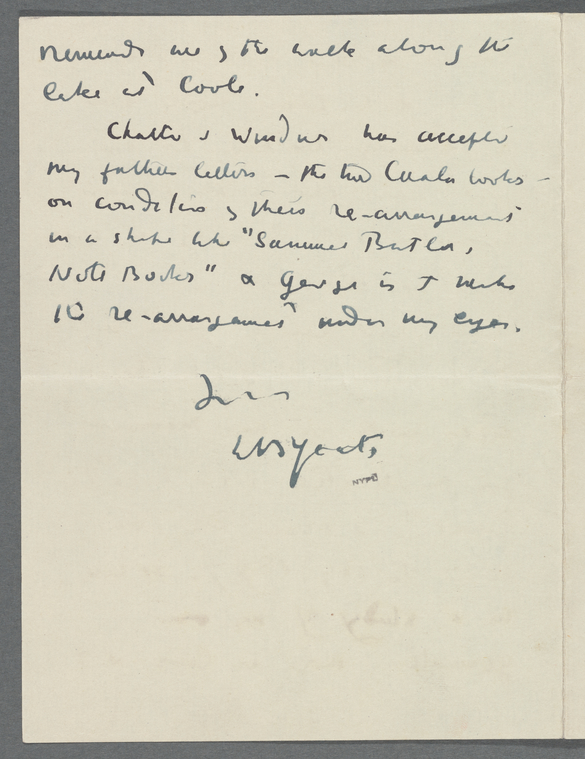 reminds me of the walk along the
lake at Coole.
Chatto & Windus has accepted
my fathers letters – the two Cuala books –
on condition of their re-arrangement
in a shape like "Samuel Butlers
Note Books" & George is to make
the re-arrangement under my eyes.
Yrs
WB Yeats
NYPL